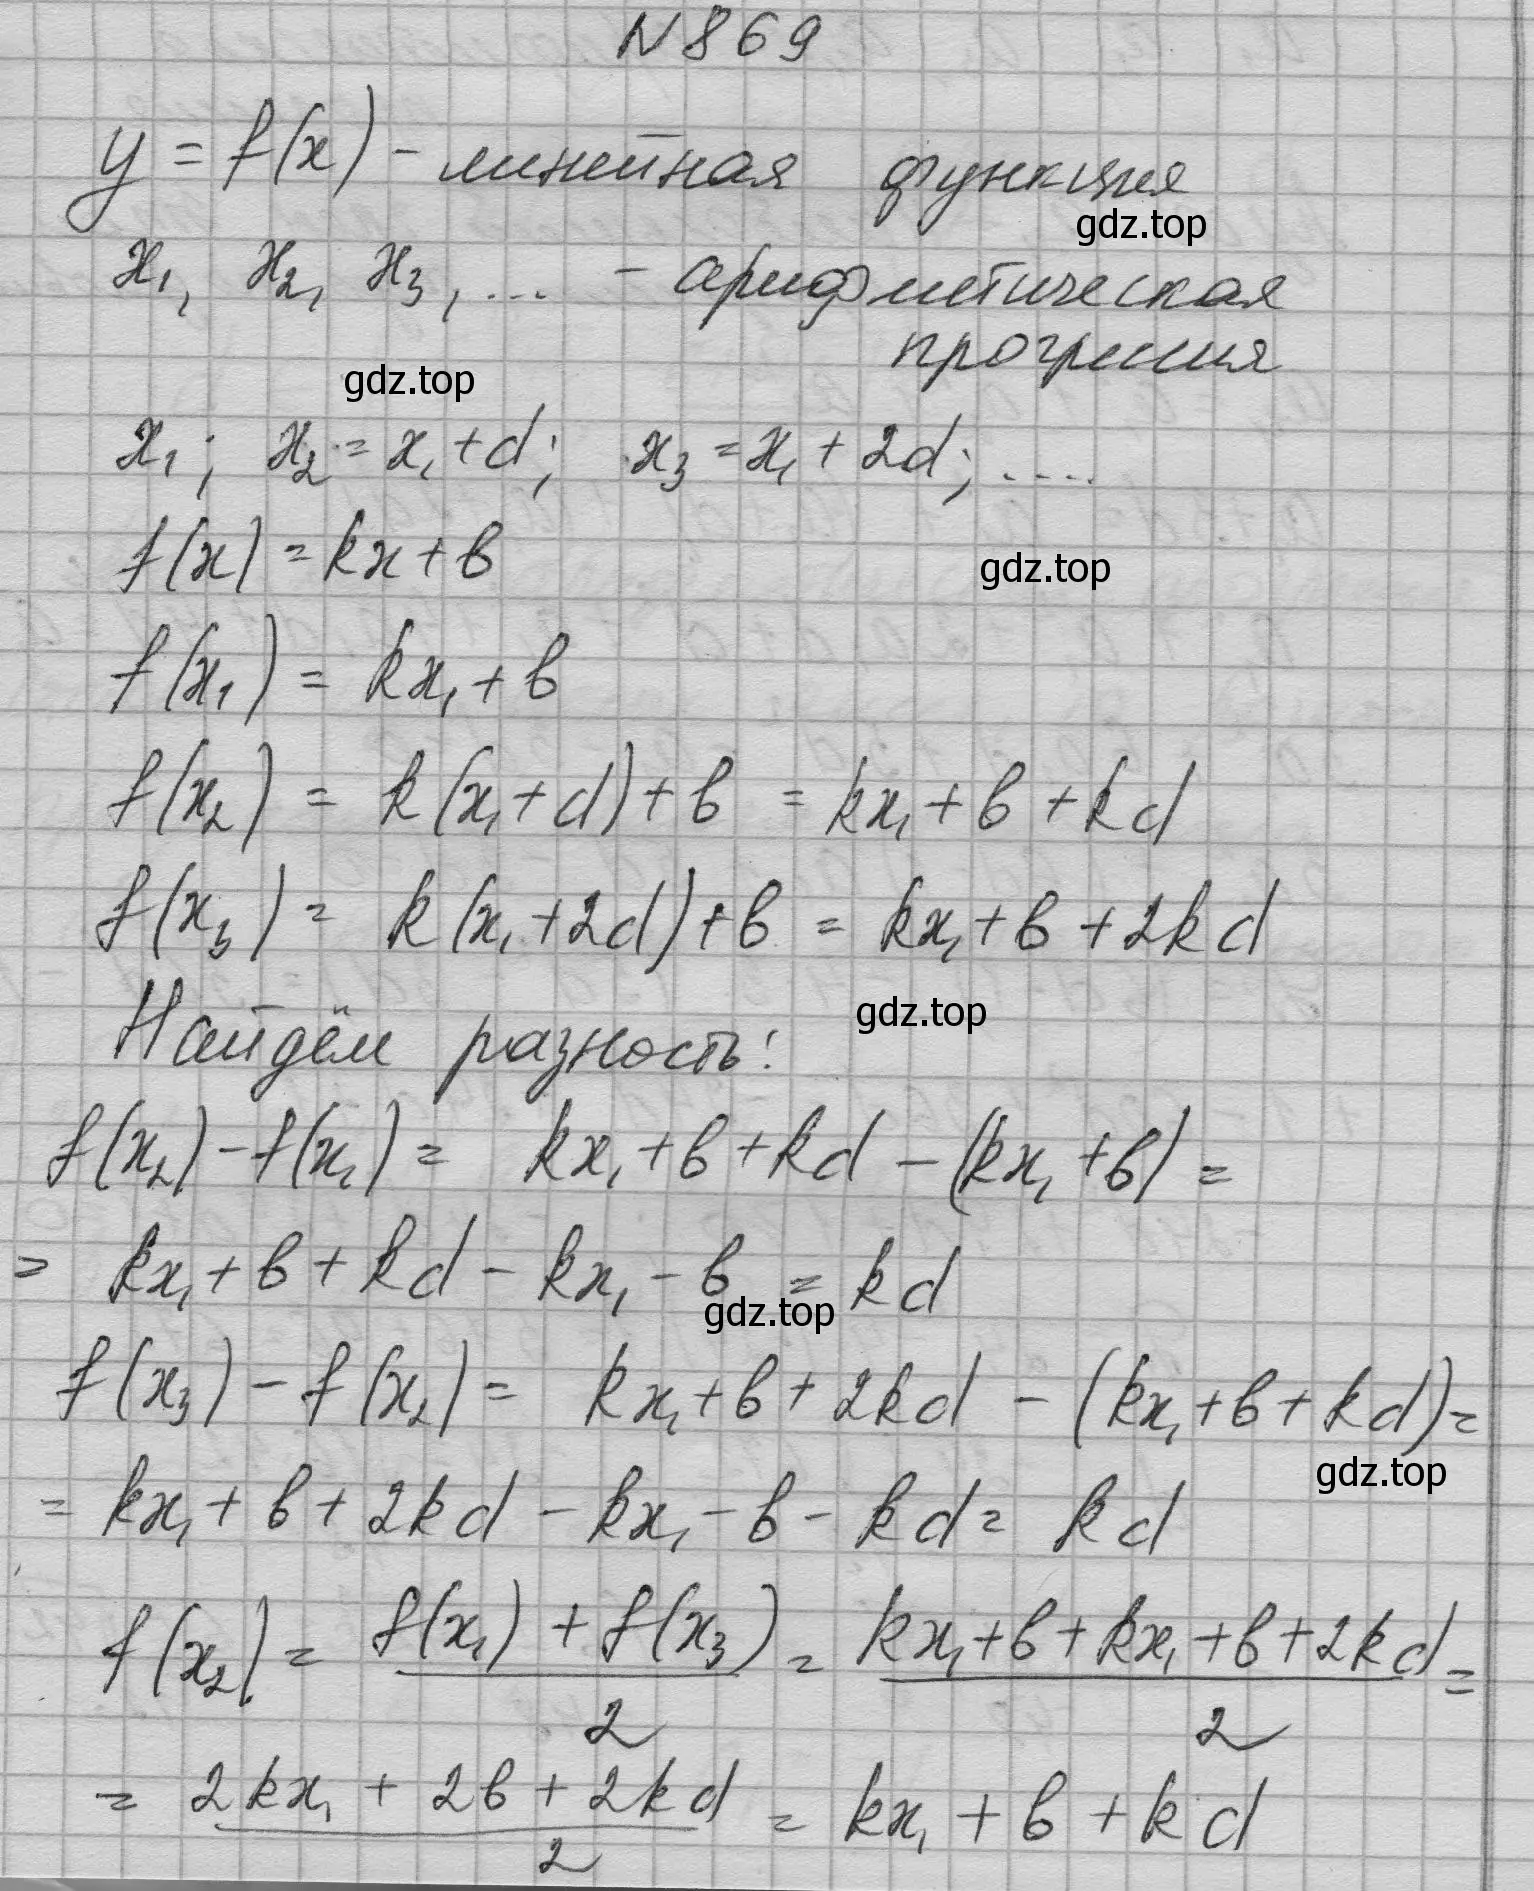 N 869
y = f(x) - линейная функция
gdz.top
x₁, x₂, x₃, ... - арифметическая
прогрессия
gdz.top
x₁; x₂ = x₁ + d; x₃ = x₁ + 2d; ....
f(x) = kx + b
gdz.top
f(x₁) = kx₁ + b
f(x₂) = k(x₁ + d) + b = kx₁ + b + kd
f(x₃) = k(x₁ + 2d) + b = kx₁ + b + 2kd
gdz.top
Найдём разность:
f(x₂) - f(x₁) = kx₁ + b + kd - (kx₁ + b) =
= kx₁ + b + kd - kx₁ - b = kd
gdz.top
f(x₃) - f(x₂) = kx₁ + b + 2kd - (kx₁ + b + kd) =
gdz.top
= kx₁ + b + 2kd - kx₁ - b - kd = kd
f(x₂) = (f(x₁) + f(x₃))/2 = (kx₁ + b + kx₁ + b + 2kd)/2 =
= (2kx₁ + 2b + 2kd)/2 = kx₁ + b + kd